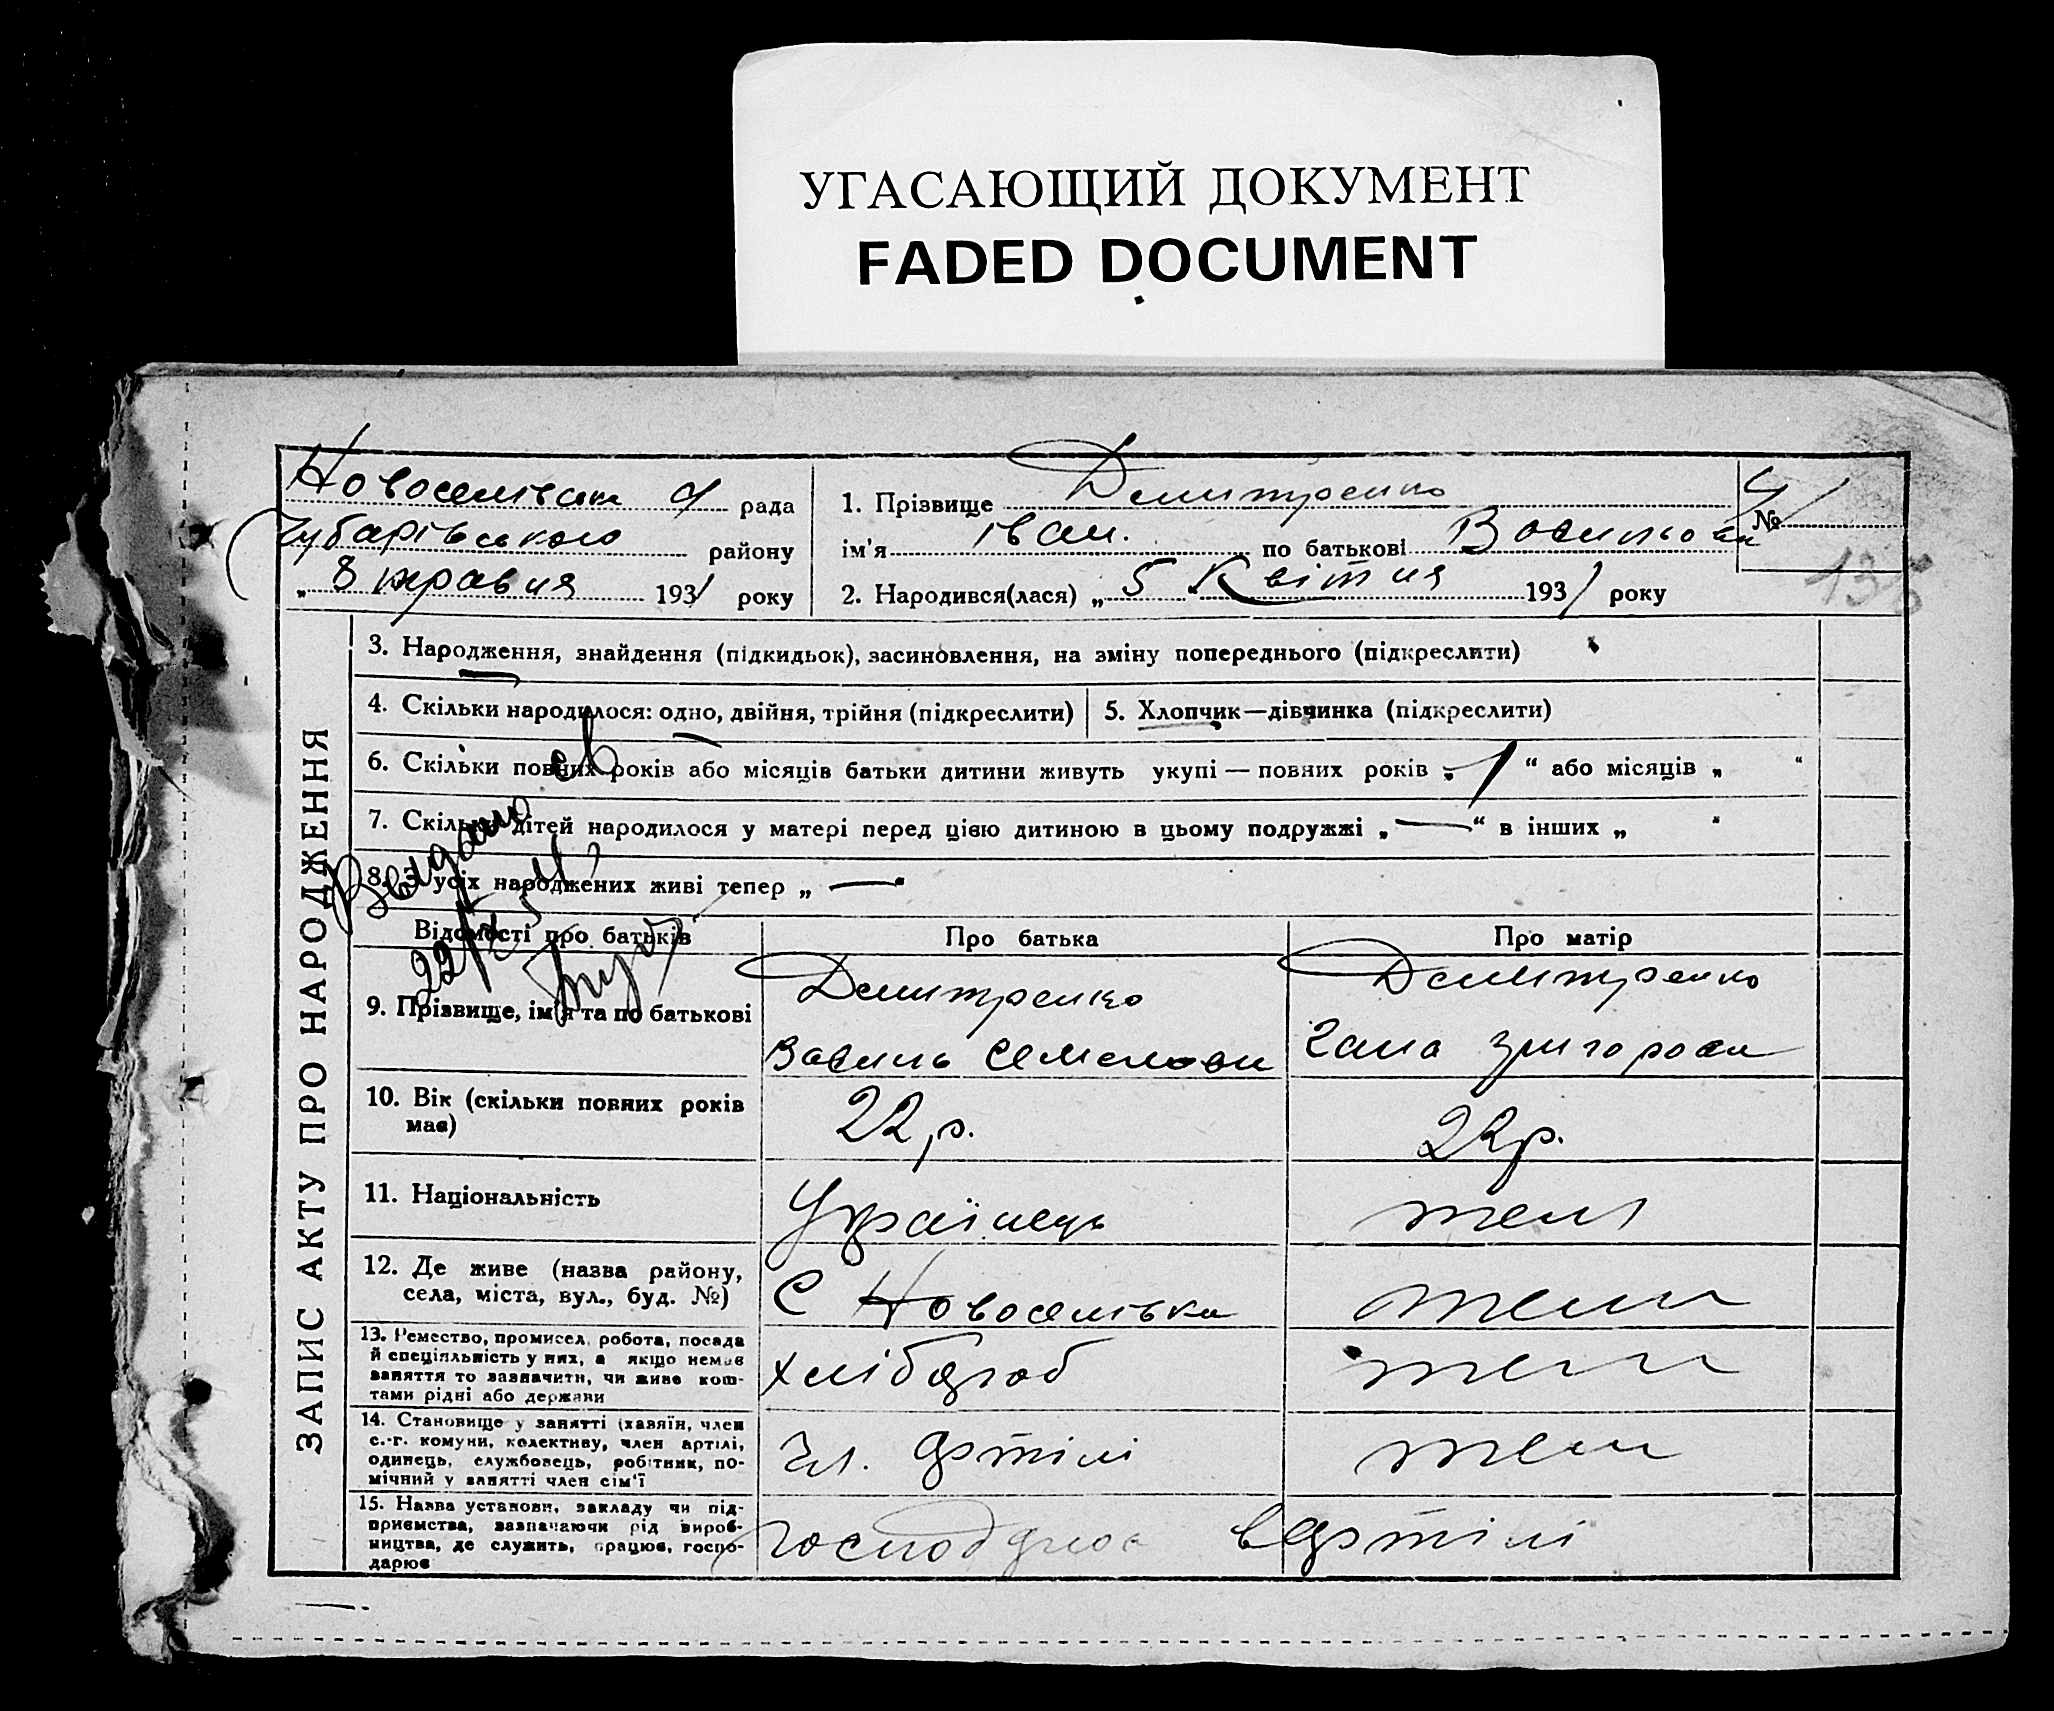 УГАСАЮЩИЙ ДОКУМЕНТ
FADED DOCUMENT
Новоселівськ рада
Чубарівського району
„ 8 травня 1931 року
1. Прізвище Демитренко
ім'я Іван. по батькові Васильови
№ 4
2. Народився(лася) „ 5 Квітня 1931 року
135
ЗАПИС АКТУ ПРО НАРОДЖЕННЯ
3. Народження, знайдення (підкидьок), засиновлення, на зміну попереднього (підкреслити)
4. Скільки народилося: одно, двійня, трійня (підкреслити)
5. Хлопчик—дівчинка (підкреслити)
6. Скільки повних років або місяців батьки дитини живуть укупі — повних років „ 1 “ або місяців „ “
7. Скільки дітей народилося у матері перед цією дитиною в цьому подружжі „ — “ в інших „ “
8. З усіх народжених живі тепер „ — “
Відомості про батьків
Про батька
Про матір
9. Прізвище, ім'я та по батькові
Демитренко
Василь Семенови
Демитренко
Гана Григоровн
10. Вік (скільки повних років
має)
22 р.
22 р.
11. Національність
Українець
теж
12. Де живе (назва району,
села, міста, вул., буд. №)
С Новоселівка
теж
13. Ремество, промисел, робота, посада
й спеціяльність у них, а якщо немає
заняття то зазначити, чи живе кош-
тами рідні або держави
хлібороб
теж
14. Становище у занятті (хазяїн, член
с.-г. комуни, колективу, член артілі,
одинець, службовець, робітник, по-
мічний у занятті член сім'ї
чл. артілі
теж
15. Назва установи, закладу чи під-
приємства, зазначаючи рід вироб-
ництва, де служить, працює, госпо-
дарює
господарює в артілі